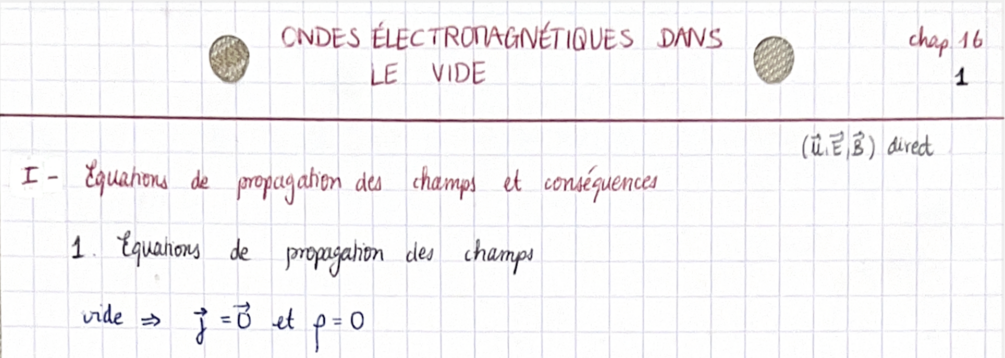 ONDES ÉLECTROMAGNÉTIQUES DANS
LE VIDE
chap 16
1
(u⃗, E⃗, B⃗) direct
I - Equations de propagation des champs et conséquences
1. Equations de propagation des champs
vide ⇒ j⃗ = 0⃗ et ρ = 0